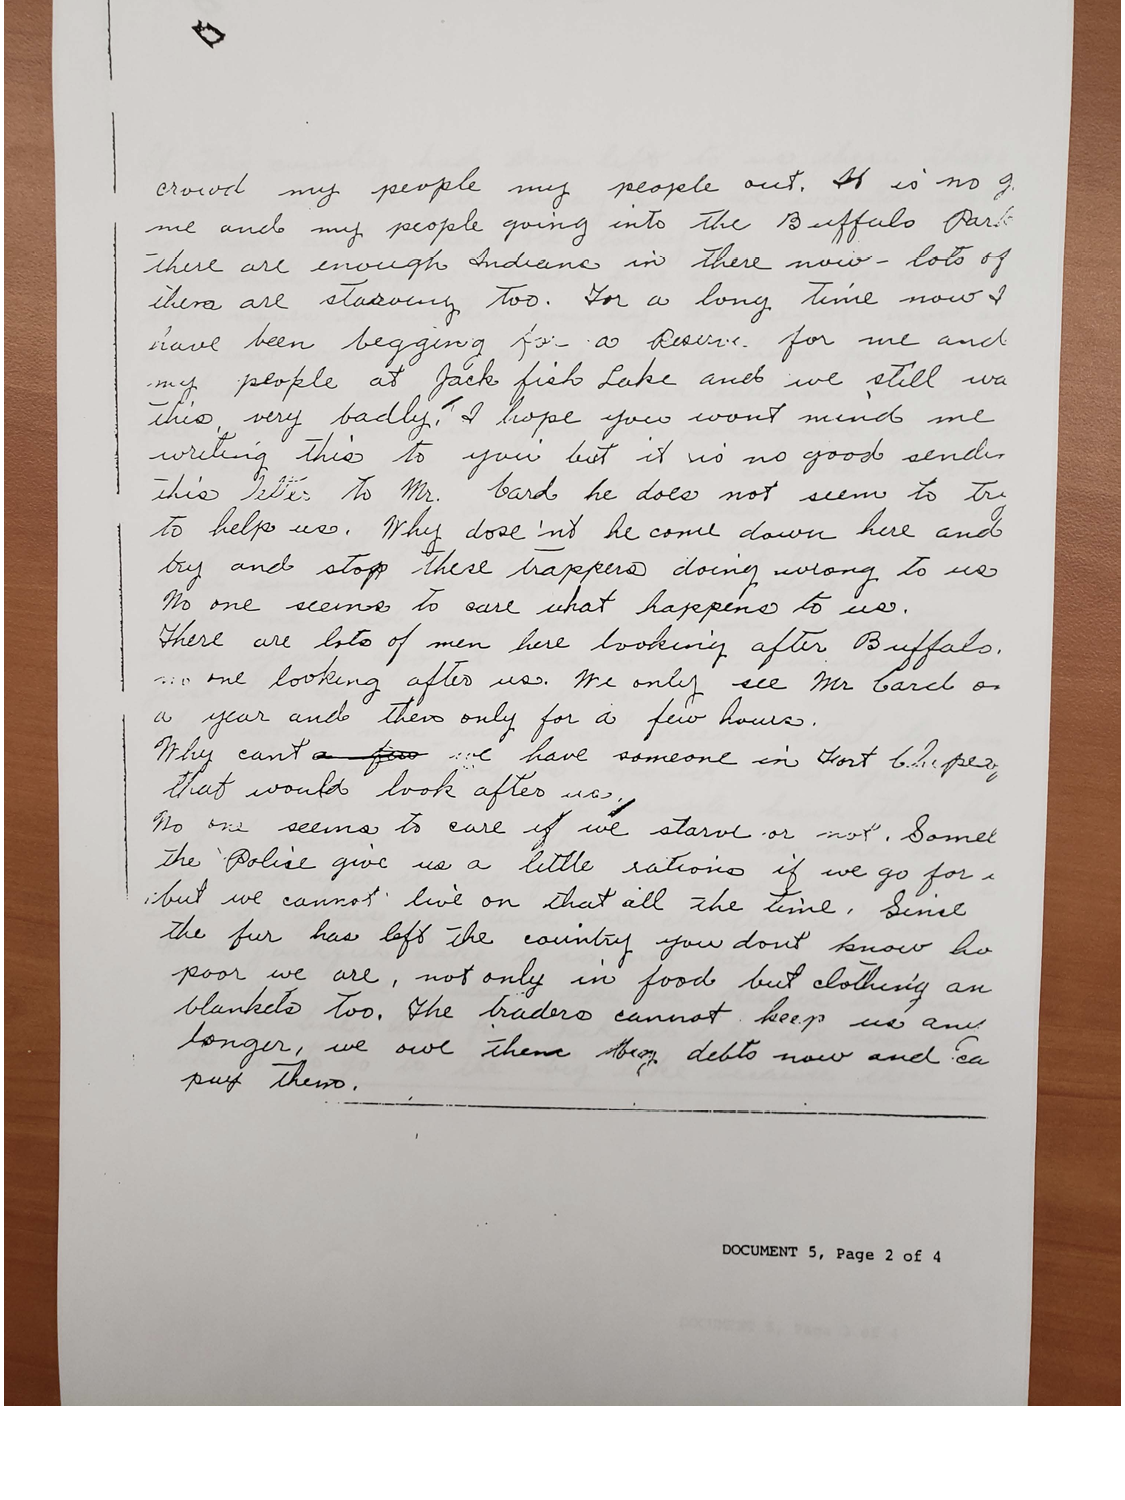 crowd my people my people out. It is no g
me and my people going into the Buffalo Park
there are enough Indians in there now - lots of
them are starving too. For a long time now I
have been begging for a Reserve for me and
my people at Jack fish Lake and we still wa
this very badly. I hope you wont mind me
writing this to you but it is no good sendin
this letter to Mr. Card he does not seem to try
to help us. Why dose'nt he come down here and
try and stop these trappers doing wrong to us
No one seems to care what happens to us.
There are lots of men here looking after Buffalo.
no one looking after us. We only see Mr Card on
a year and then only for a few hours.
Why cant a few we have someone in Fort Chipewy
that would look after us.
No one seems to care if we starve or not. Somet
the Police give us a little rations if we go for i
but we cannot live on that all the time. Sinse
the fur has left the country you dont know ho
poor we are, not only in food but clothing an
blankets too. The traders cannot keep us any
longer, we owe them debts now and ca
pay them.
DOCUMENT 5, Page 2 of 4